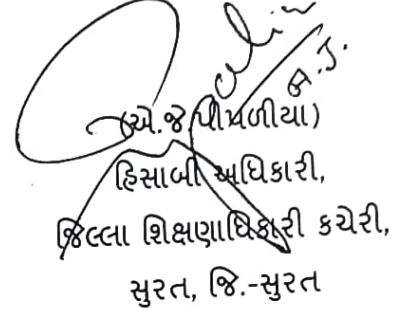 (એ.જે પીપળીયા)
હિસાબી અધિકારી,
જિલ્લા શિક્ષણાધિકારી કચેરી,
સુરત, જિ.-સુરત